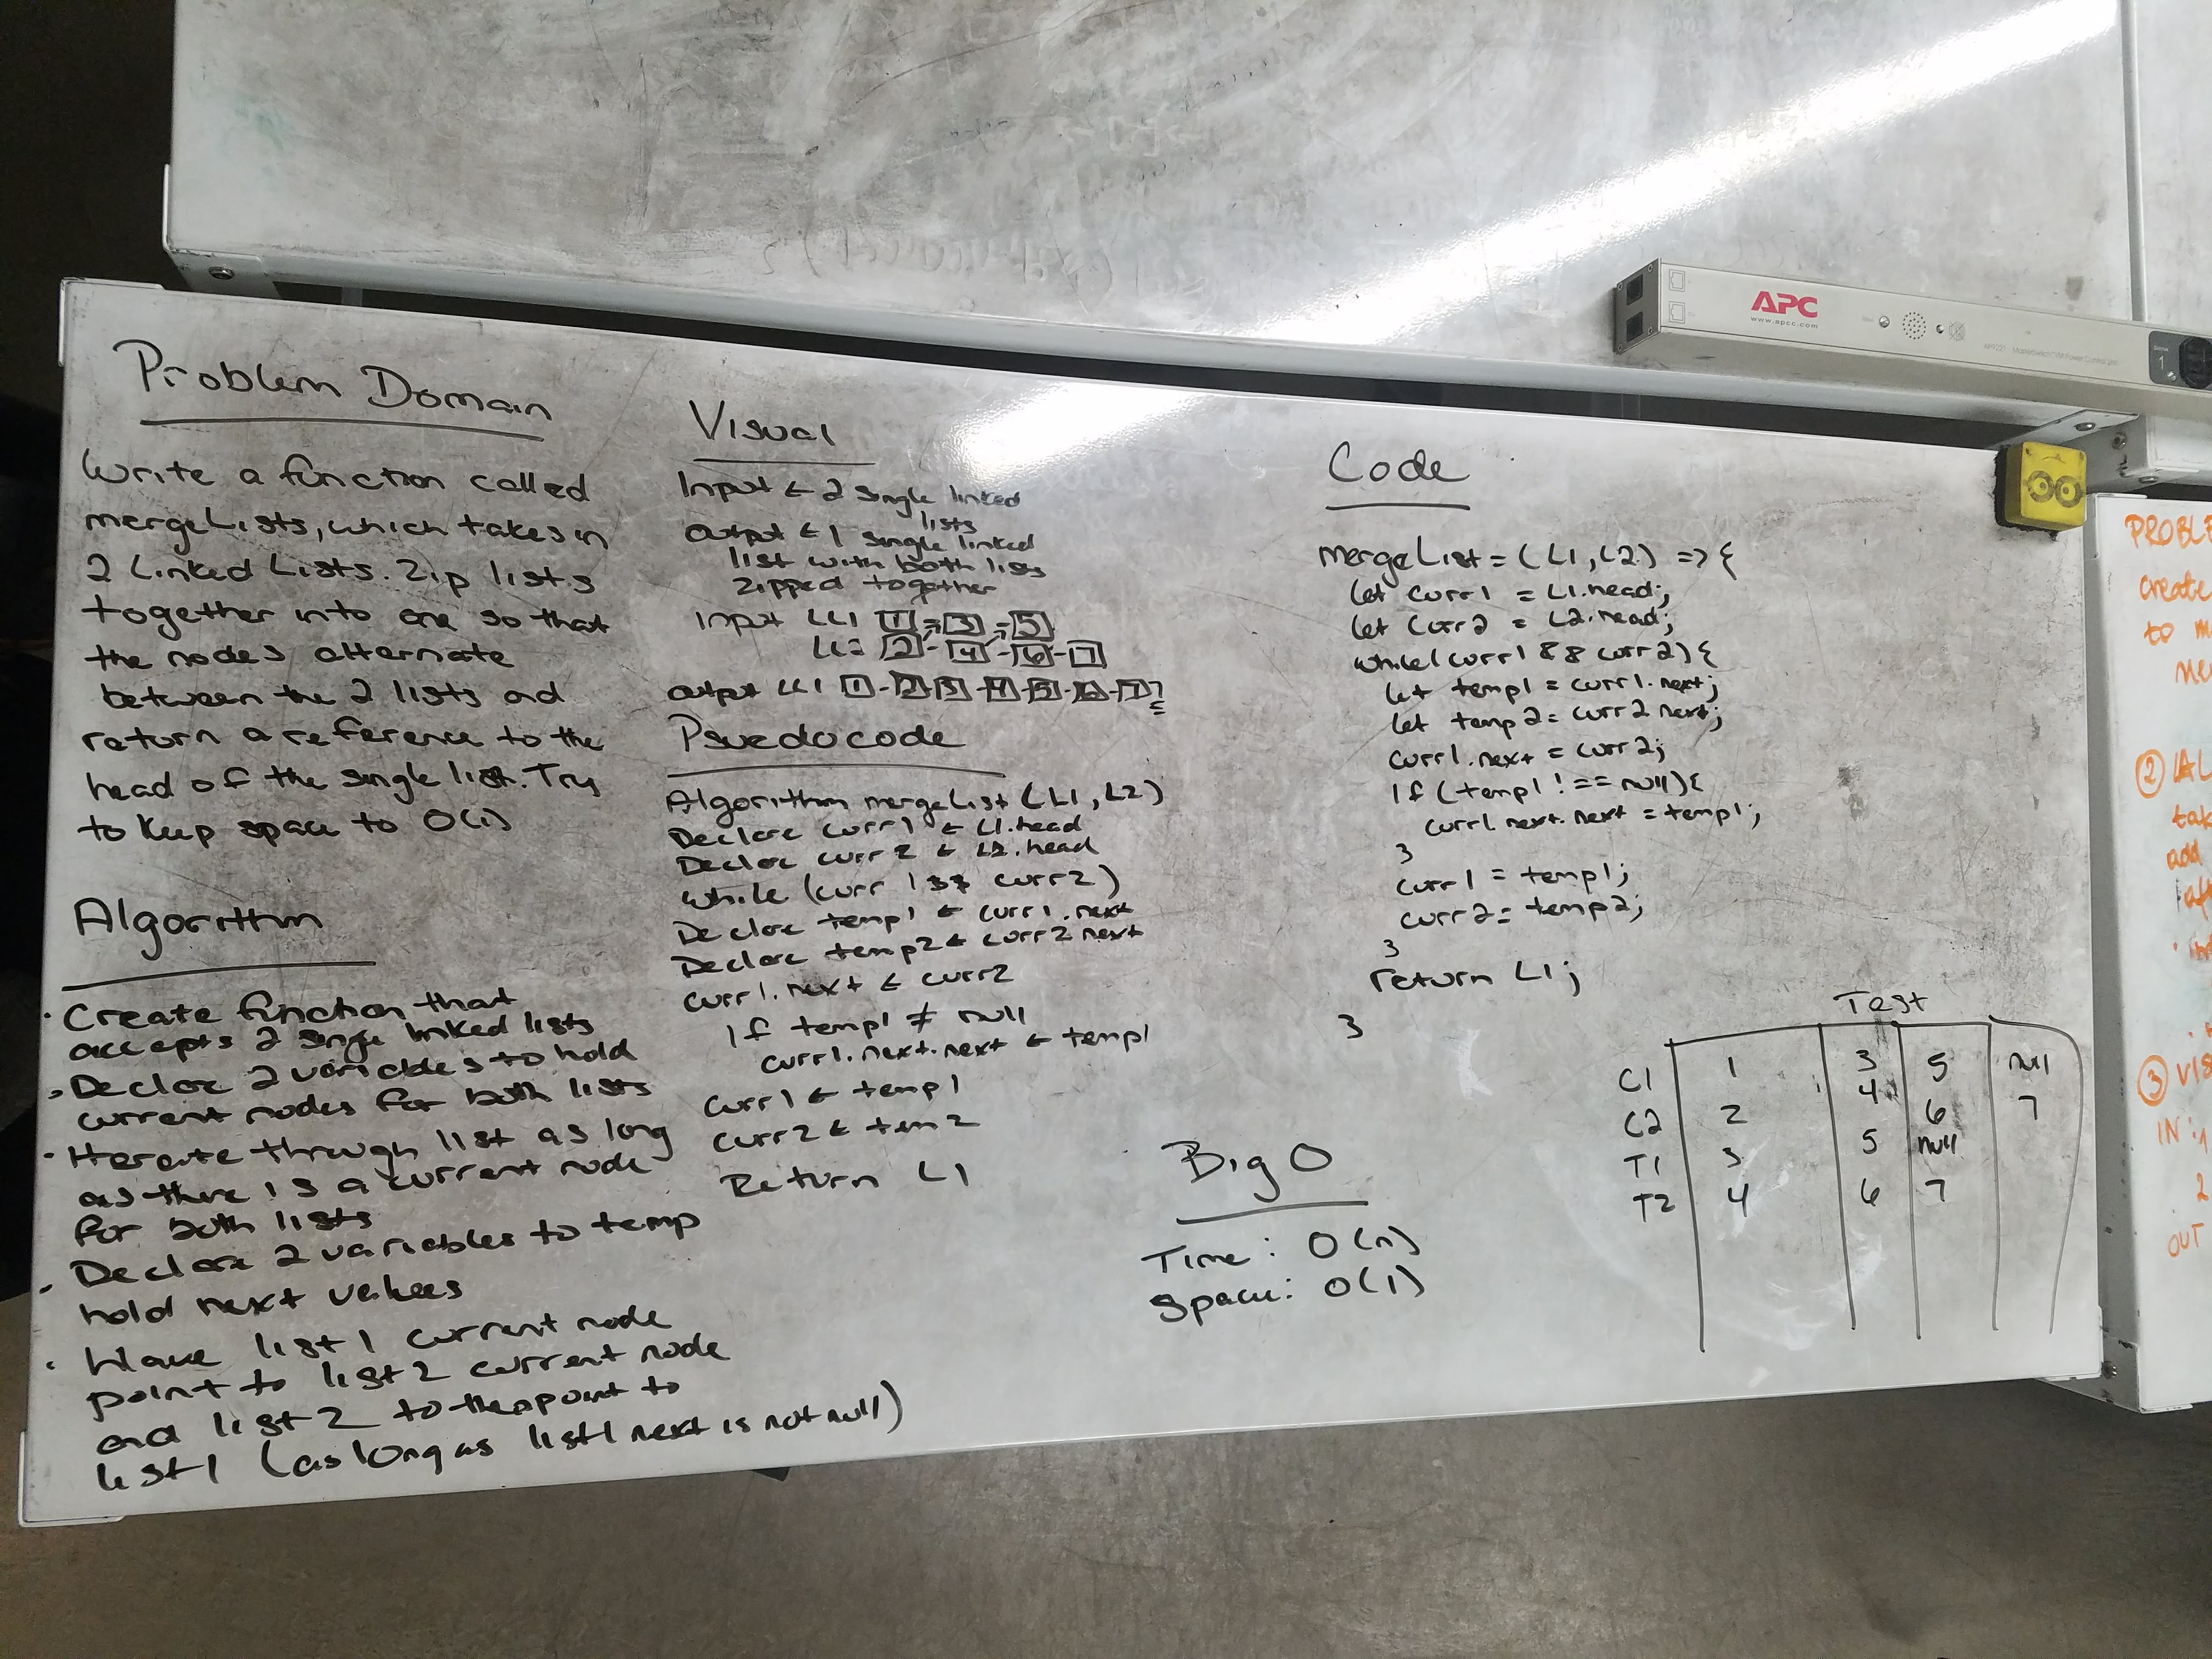 APC
www.apcc.com
Problem Domain
Write a function called
mergeLists, which takes in
2 Linked Lists. Zip lists
together into one so that
the nodes alternate
between the 2 lists and
return a reference to the
head of the single list. Try
to keep space to O(1)
Algorithm
· Create function that
accepts 2 single linked lists
· Declare 2 variables to hold
current nodes for both lists
· Iterate through list as long
as there is a current node
for both lists
· Declare 2 variables to temp
hold next values
· Have list 1 current node
point to list 2 current node
and list 2 to the point to
list 1 (as long as list 1 next is not null)
Visual
Input ← 2 single linked
lists
Output ← 1 single linked
list with both lists
zipped together
Input LL1 1 - 3 - 5
LL2 2 - 4 - 6 - 7
output LL1 1 - 2 3 - 4 - 5 - 6 - 7
Psuedocode
Algorithm mergeList (LL1, L2)
Declare curr1 ← L1.head
Declare curr2 ← L2.head
while (curr 1 && curr2)
Declare temp1 ← curr1.next
Declare temp2 ← curr2 next
curr1.next ← curr2
If temp1 ≠ null
curr1.next.next ← temp1
curr1 ← temp1
curr2 ← tem2
Return L1
Code
mergeList = (L1, L2) => {
let curr1 = L1.head;
let curr2 = L2.head;
while(curr1 && curr2) {
let temp1 = curr1.next;
let temp2 = curr2 next;
curr1.next = curr2;
If (temp1 !== null) {
curr1.next.next = temp1;
}
curr1 = temp1;
curr2 = temp2;
}
return L1;
}
Big O
Time: O(n)
Space: O(1)
Test
C1 1 3 5 null
C2 2 4 6 7
T1 3 5 null
T2 4 6 7
PROBLE
create
to m
② AL
take
add
③ VIS
IN: 1
2
OUT